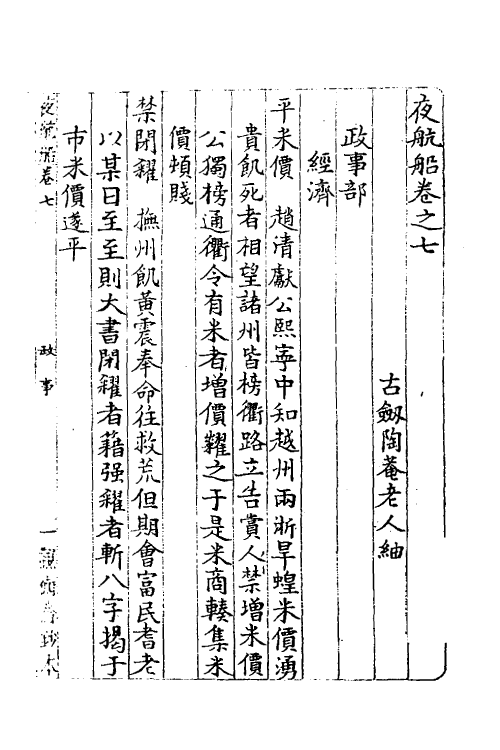 夜航船卷之七
古劔陶菴老人紬
政事部
經濟
平米價　趙清獻公熙寧中知越州兩浙旱蝗米價湧
貴飢死者相望諸州皆榜衢路立告賞人禁增米價
公獨榜通衢令有米者增價糶之于是米商輳集米
價頓賤
禁閉糴　撫州飢黃震奉命往救荒但期會富民耆老
以某日至至則大書閉糴者籍强糴者斬八字揭于
市米價遂平
夜航船卷七
政事
一